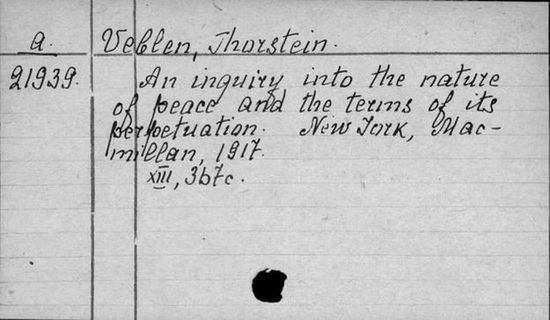 a. Veblen, Thorstein.
21939. An inquiry into the nature
of peace and the terms of its
perpetuation. New York, Mac-
millan, 1917.
XIII, 367c.